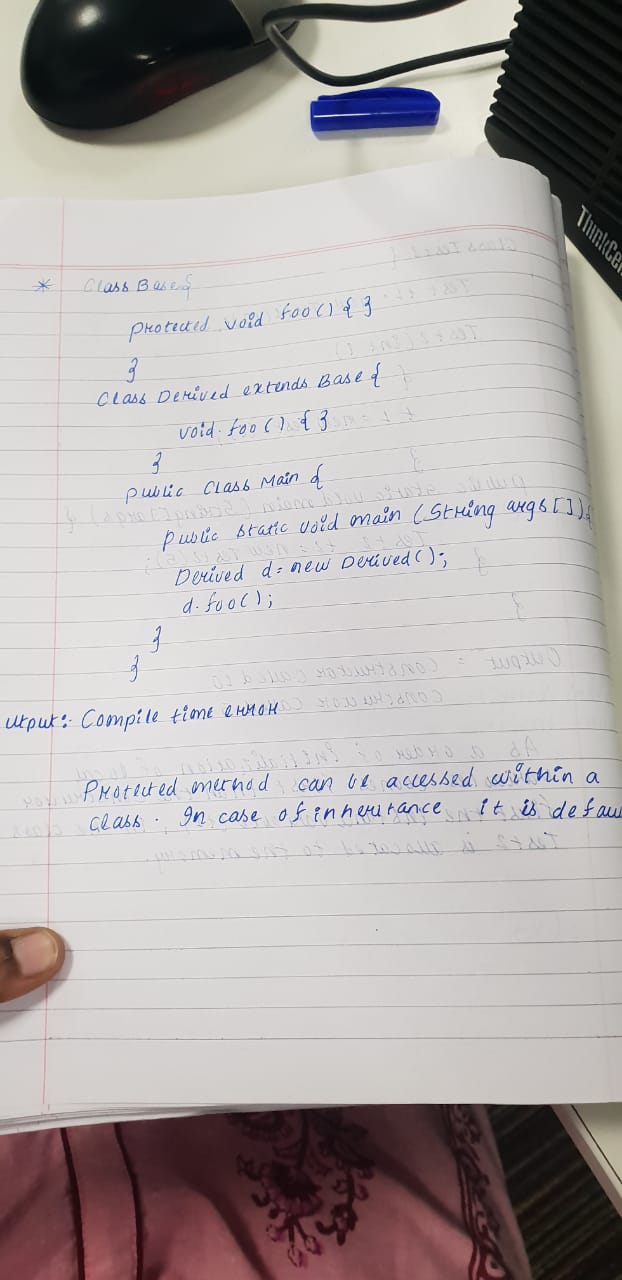 ThinkCen
* Class Base{
Protected void foo() { }
}
Class Derived extends Base {
void foo() { }
}
Public Class Main {
Public static void main (String args []) {
Derived d = new Derived();
d.foo();
}
}
utput:- Compile time error
Protected method can be accessed within a
class. In case of inheritance it is defau